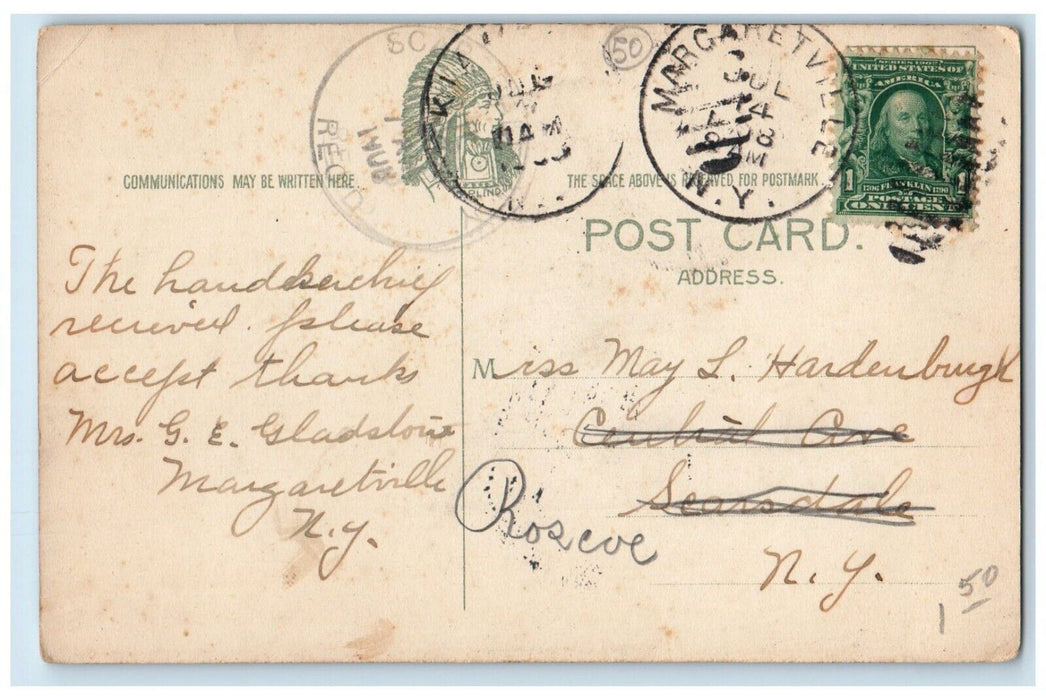 COMMUNICATIONS MAY BE WRITTEN HERE.
THE SPACE ABOVE IS RESERVED FOR POSTMARK.
POST CARD.
ADDRESS.
MARGARETVILLE
JUL
4
8 AM
N.Y.
REC'D
SERIES 1902
UNITED STATES OF
AMERICA
1706 FRANKLIN 1790
1 POSTAGE 1
ONE CENT
50
The handkerchief
received. please
accept thanks
Mrs. G. E. Gladstone
Margaretville
N.Y.
Miss May L. Hardenburgh
Central Ave
Scarsdale
Roscoe
N.Y.
1 50